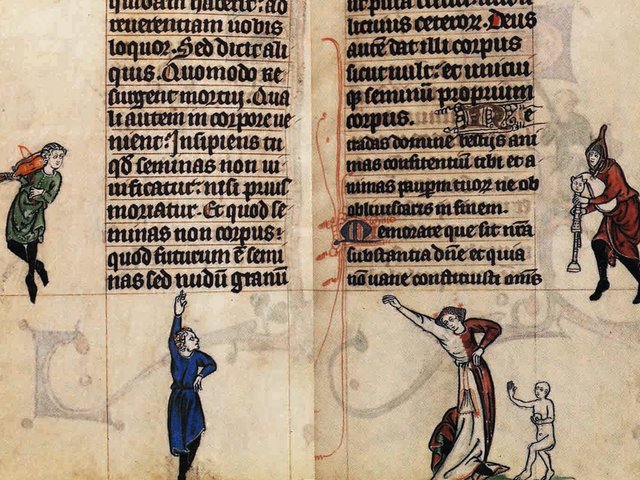 quidam habent: ad
reuerentiam uobis
loquor. Sed dicit ali
quis. Quomodo re
surgent mortui. Qua
li autem in corpore ue
nient: Insipiens tu
qd̄ seminas non ui
uificatur: nisi prius
moriatur. Et quod se
minas non corpus:
quod futurum ē semi
nas sed nudū granū
licuius ceteroꝝ. Deus
autē dat illi corpus
sicut uult: et unicui
qꝫ seminū proprium
corpus. Ne
tradas domine bestiis ani
mas confitentium tibi et a
nimas pauꝑum tuoꝝ ne ob
obliuiscaris in finem.
Memorare que sit
substantia dn̄e et quia
nō uane constituisti om̄s